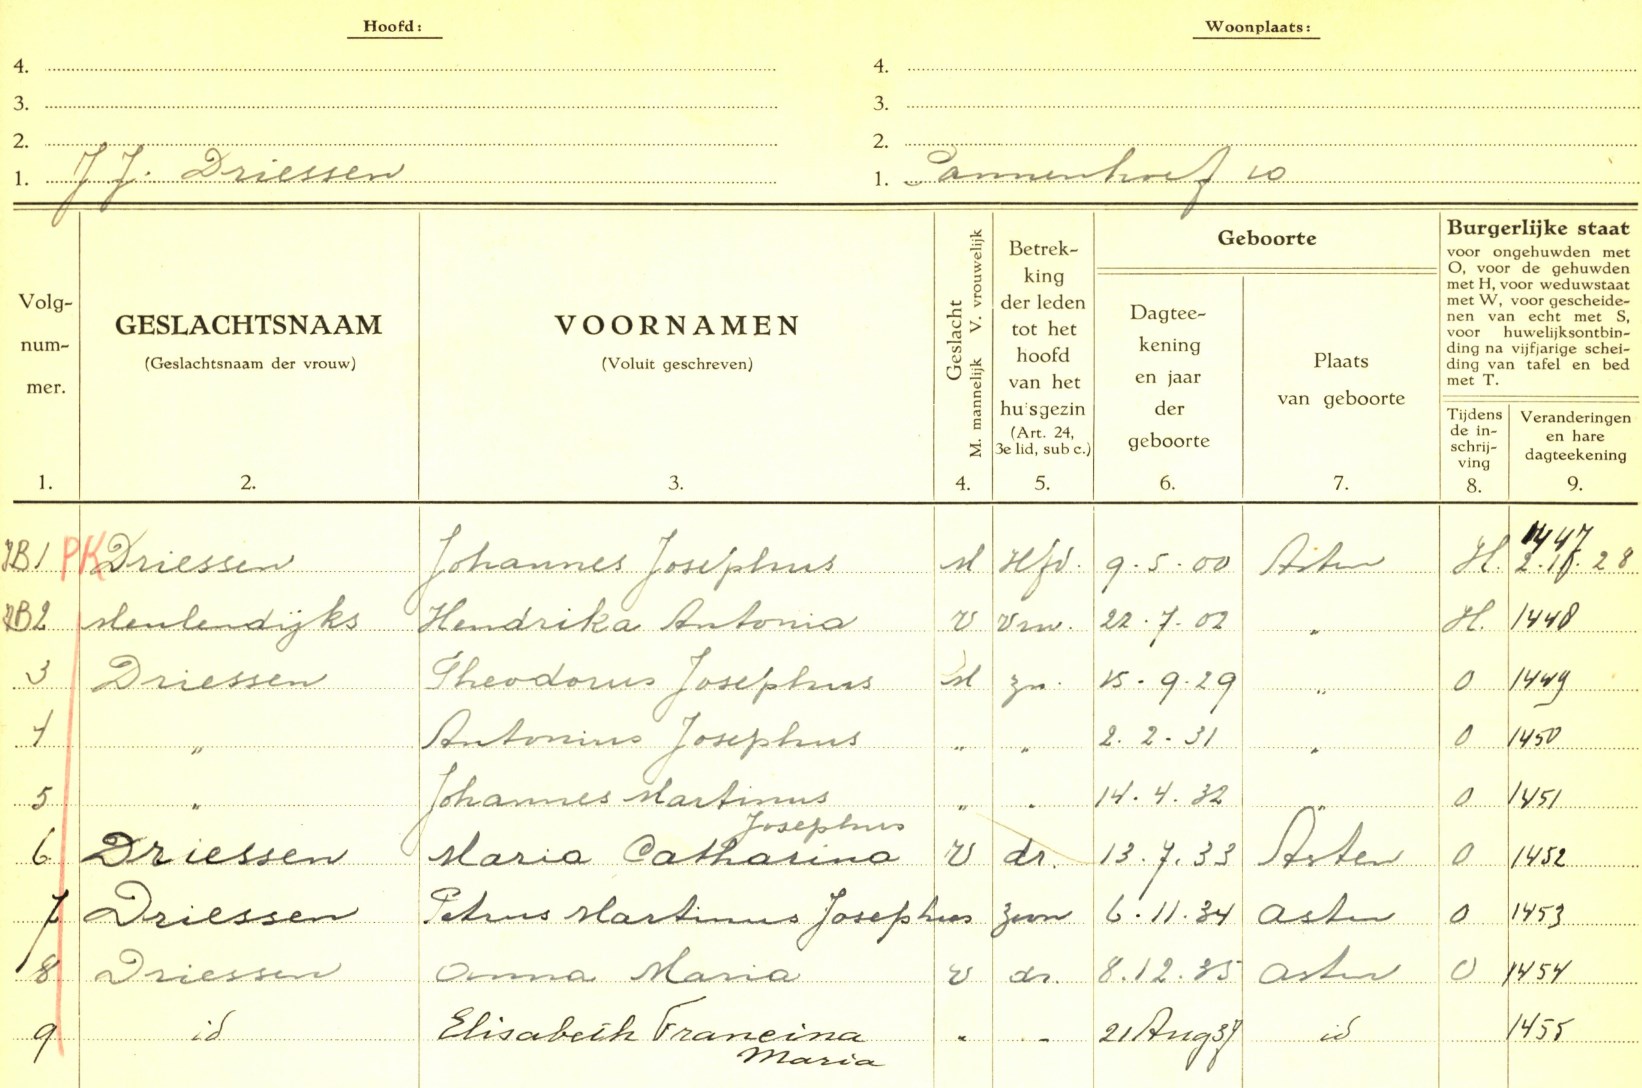 Hoofd: Woonplaats:
4. 4.
3. 3.
2. 2.
1. J J. Driessen 1. Pannenhoef 10
Volg-
num-
mer.
1.
GESLACHTSNAAM
(Geslachtsnaam der vrouw)
2.
VOORNAMEN
(Voluit geschreven)
3.
Geslacht
M. mannelijk V. vrouwelijk
4.
Betrek-
king
der leden
tot het
hoofd
van het
huisgezin
(Art. 24,
3e lid, sub c.)
5.
Geboorte
Dagtee-
kening
en jaar
der
geboorte
6.
Plaats
van geboorte
7.
Burgerlijke staat
voor ongehuwden met
O, voor de gehuwden
met H, voor weduwstaat
met W, voor gescheide-
nen van echt met S,
voor huwelijksontbin-
ding na vijfjarige schei-
ding van tafel en bed
met T.
Tijdens
de in-
schrij-
ving
8.
Veranderingen
en hare
dagteekening
9.
1447
1 PK Driessen Johannes Josephus M Hfd. 9.5.00 Asten H. 28
2 Meulendijks Hendrika Antonia V Vrw. 22.7.02 " H. 1448
3 Driessen Theodorus Josephus M zn. 15-9-29 " O 1449
4 " Antonius Josephus " " 2.2-31 " O 1450
5 " Johannes Martinus " " 14.4.32 " O 1451
Josephus
6 Driessen Maria Catharina V dr. 13.7.33 Asten O 1452
7 Driessen Petrus Martinus Josephus zoon 6.11.34 Asten O 1453
8 Driessen Anna Maria V dr. 8.12.35 Asten O 1454
9 id Elisabeth Francina " " 21 Aug 37 id 1455
Maria